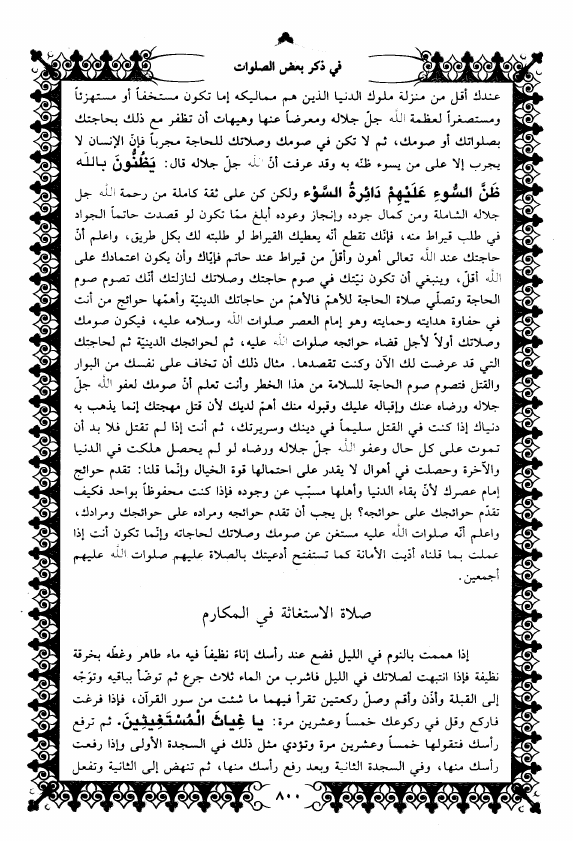 في ذكر بعض الصلوات
عندك أقل من منزلة ملوك الدنيا الذين هم مماليكه إما تكون مستخفاً أو مستهزئاً
ومستصغراً لعظمة الله جلّ جلاله ومعرضاً عنها وهيهات أن تظفر مع ذلك بحاجتك
بصلواتك أو صومك، ثم لا تكن في صومك وصلاتك للحاجة مجرباً فإنّ الإنسان لا
يجرب إلا على من يسوء ظنّه به وقد عرفت أنّ الله جلّ جلاله قال: يَظُنُّونَ بِاللّه
ظَنَّ السُّوءِ عَلَيْهِمْ دَائِرَةُ السَّوْء ولكن كن على ثقة كاملة من رحمة الله جل
جلاله الشاملة ومن كمال جوده وإنجاز وعوده أبلغ ممّا تكون لو قصدت حاتماً الجواد
في طلب قيراط منه، فإنّك تقطع أنّه يعطيك القيراط لو طلبته لك بكل طريق، واعلم أنّ
حاجتك عند الله تعالى أهون وأقلّ من قيراط عند حاتم فإيّاك وأن يكون اعتمادك على
الله أقل، وينبغي أن تكون نيّتك في صوم حاجتك وصلاتك لنازلتك أنّك تصوم صوم
الحاجة وتصلّي صلاة الحاجة للأهمّ فالأهمّ من حاجاتك الدينيّة وأهمّها حوائج من أنت
في حفاوة هدايته وحمايته وهو إمام العصر صلوات الله وسلامه عليه، فيكون صومك
وصلاتك أولاً لأجل قضاء حوائجه صلوات الله عليه، ثم لحوائجك الدينيّة ثم لحاجتك
التي قد عرضت لك الآن وكنت تقصدها. مثال ذلك أن تخاف على نفسك من البوار
والقتل فتصوم صوم الحاجة للسلامة من هذا الخطر وأنت تعلم أنّ صومك لعفو الله جلّ
جلاله ورضاه عنك وإقباله عليك وقبوله منك أهمّ لديك لأن قتل مهجتك إنما يذهب به
دنياك إذا كنت في القتل سليماً في دينك وسريرتك، ثم أنت إذا لم تقتل فلا بد أن
تموت على كل حال وعفو الله جلّ جلاله ورضاه لو لم يحصل هلكت في الدنيا
والآخرة وحصلت في أهوال لا يقدر على احتمالها قوة الخيال وإنّما قلنا: تقدم حوائج
إمام عصرك لأنّ بقاء الدنيا وأهلها مسبّب عن وجوده فإذا كنت محفوظاً بواحد فكيف
تقدّم حوائجك على حوائجه؟ بل يجب أن تقدم حوائجه ومراده على حوائجك ومرادك،
واعلم أنّه صلوات الله عليه مستغن عن صومك وصلاتك لحاجاته وإنّما تكون أنت إذا
عملت بما قلناه أدّيت الأمانة كما تستفتح أدعيتك بالصلاة عليهم صلوات الله عليهم
أجمعين.
صلاة الاستغاثة في المكارم
إذا هممت بالنوم في الليل فضع عند رأسك إناءً نظيفاً فيه ماء طاهر وغطّه بخرقة
نظيفة فإذا انتبهت لصلاتك في الليل فاشرب من الماء ثلاث جرع ثم توضّأ بباقيه وتوّجه
إلى القبلة وأذّن وأقم وصلّ ركعتين تقرأ فيهما ما شئت من سور القرآن، فإذا فرغت
فاركع وقل في ركوعك خمساً وعشرين مرة: يا غِياثَ الْمُسْتَغيثينَ. ثم ترفع
رأسك فتقولها خمساً وعشرين مرة وتؤدي مثل ذلك في السجدة الأولى وإذا رفعت
رأسك منها، وفي السجدة الثانية وبعد رفع رأسك منها، ثم تنهض إلى الثانية وتفعل
٨٠٠